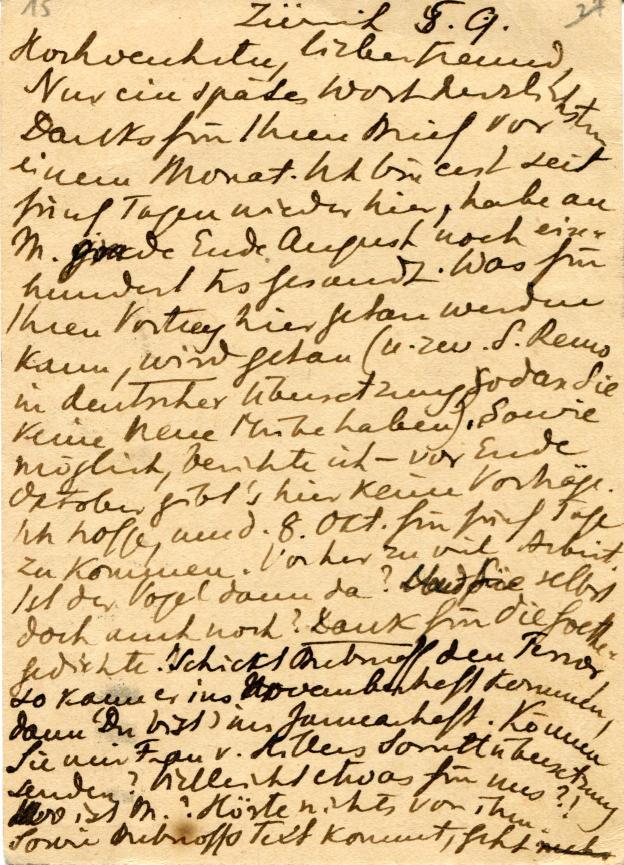 15
24
Zürich 8. 9.
Hochverehrter, lieber Freund,
Nur ein spätes Wort herzlichsten
Danks für Ihren Brief vor
einem Monat. Ich bin erst seit
fünf Tagen wieder hier, habe an
M. Ende August noch
hundert frs gesandt. Was für
Ihren Vortrag hier getan werden
kann, wird getan (u. zw. S. Remo
in deutscher Übersetzung, sodass Sie
keine neue Mühe haben). Sowie
möglich, berichte ich – vor Ende
Oktober gibt's hier keine Vorträge.
Ich hoffe, um d. 8. Okt. für fünf Tage
zu kommen. Vorher zu viel Arbeit.
Ist der Vogel dann da? selbst
doch auch noch? Dank für die Goethe-
gedichte. Schickt Bubnoff den Terror,
so kann er ins Novemberheft kommen,
dann (Du bist) ins Januarheft. Können
Sie mir Frau v. Sonettübersetzung
senden? Vielleicht etwas für uns?!
Wo ist M.? Hörte nichts von ihm.
Sowie Bubnoffs Text kommt, geht